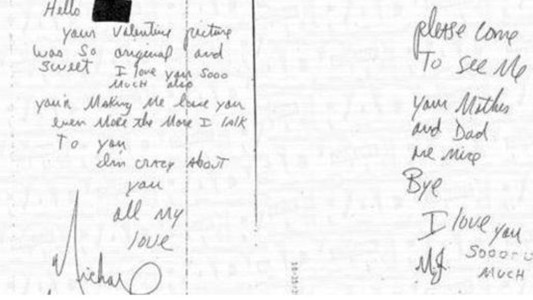 Hello
your Valentine picture
was so original and
sweet I love you Sooo
MUCH also
your Making Me love you
even More the More I talk
To you
I'm CRAZY About
you
all my
love
Michael
please come
To see Me
your Mother
and Dad
are nice
Bye
I love you
MJ Soooo
MUCH